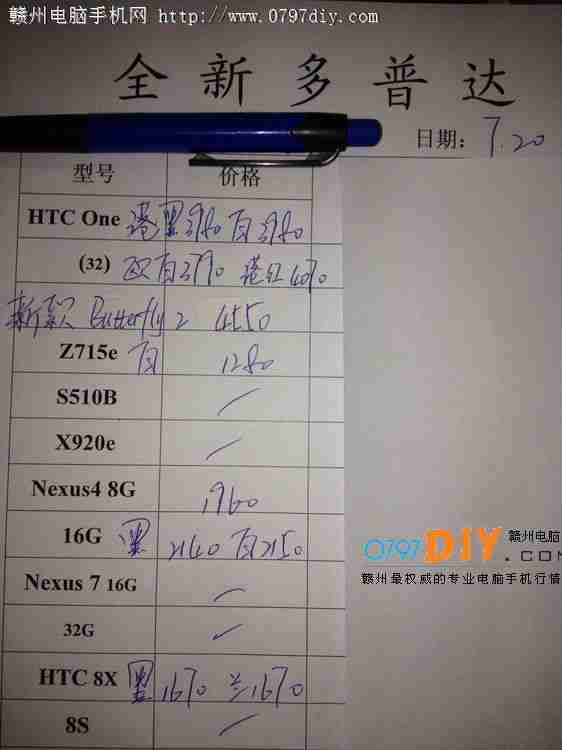 赣州电脑手机网 http://www.0797diy.com/
全新多普达
日期: 7.20
型号 价格
HTC One 港黑3980 白3980
(32) 欧白3790 港红4070
新款 Butterfly 2 4550
Z715e 白 1280
S510B /
X920e /
Nexus4 8G 1960
16G 黑 2140 白2150
Nexus 7 16G /
32G /
HTC 8X 黑 1670 兰1670
8S /
0797DIY.COM 赣州电脑
赣州最权威的专业电脑手机行情